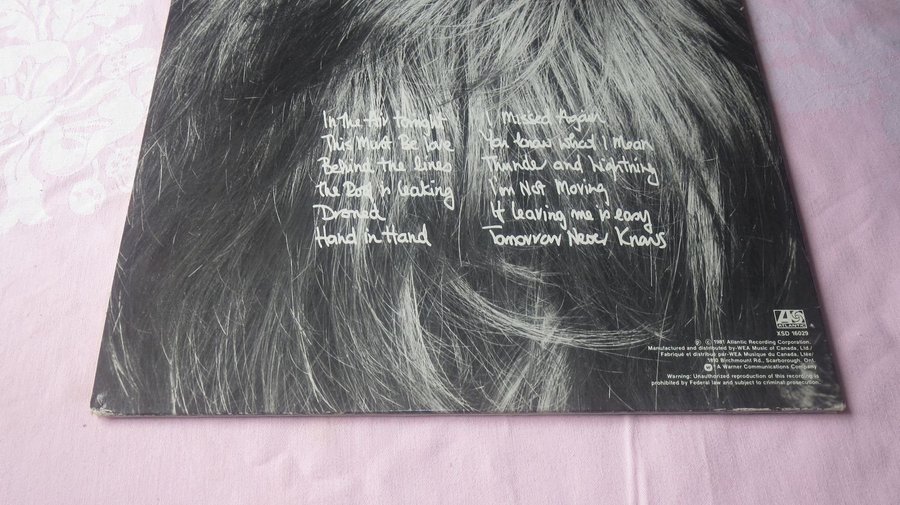 In the Air tonight
This Must Be love
Behind the lines
the Roof is leaking
Droned
Hand in Hand
I Missed Again
You know What I Mean
Thunder and lightning
I'm Not Moving
If leaving me is easy
Tomorrow Never Knows
ATLANTIC
XSD 16029
℗ © 1981 Atlantic Recording Corporation.
Manufactured and distributed by-WEA Music of Canada, Ltd./
Fabriqué et distribué par-WEA Musique du Canada, Ltée/
1810 Birchmount Rd., Scarborough, Ont.
A Warner Communications Company
Warning: Unauthorized reproduction of this recording is
prohibited by Federal law and subject to criminal prosecution.